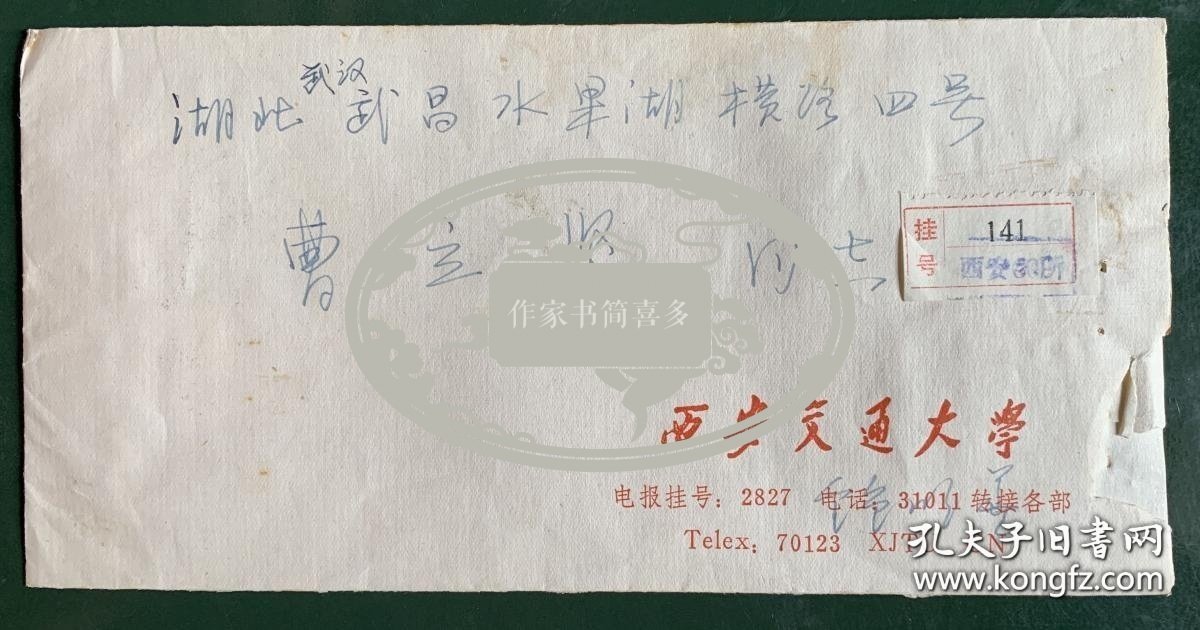 武汉
湖北 武昌 水果湖 横路 四号
曹立贤 同志
挂号
141
西安
作家书简喜多
西安交通大学
电报挂号：2827 电话：31011 转接各部
Telex：70123 XJT N
孔夫子旧书网
www.kongfz.com